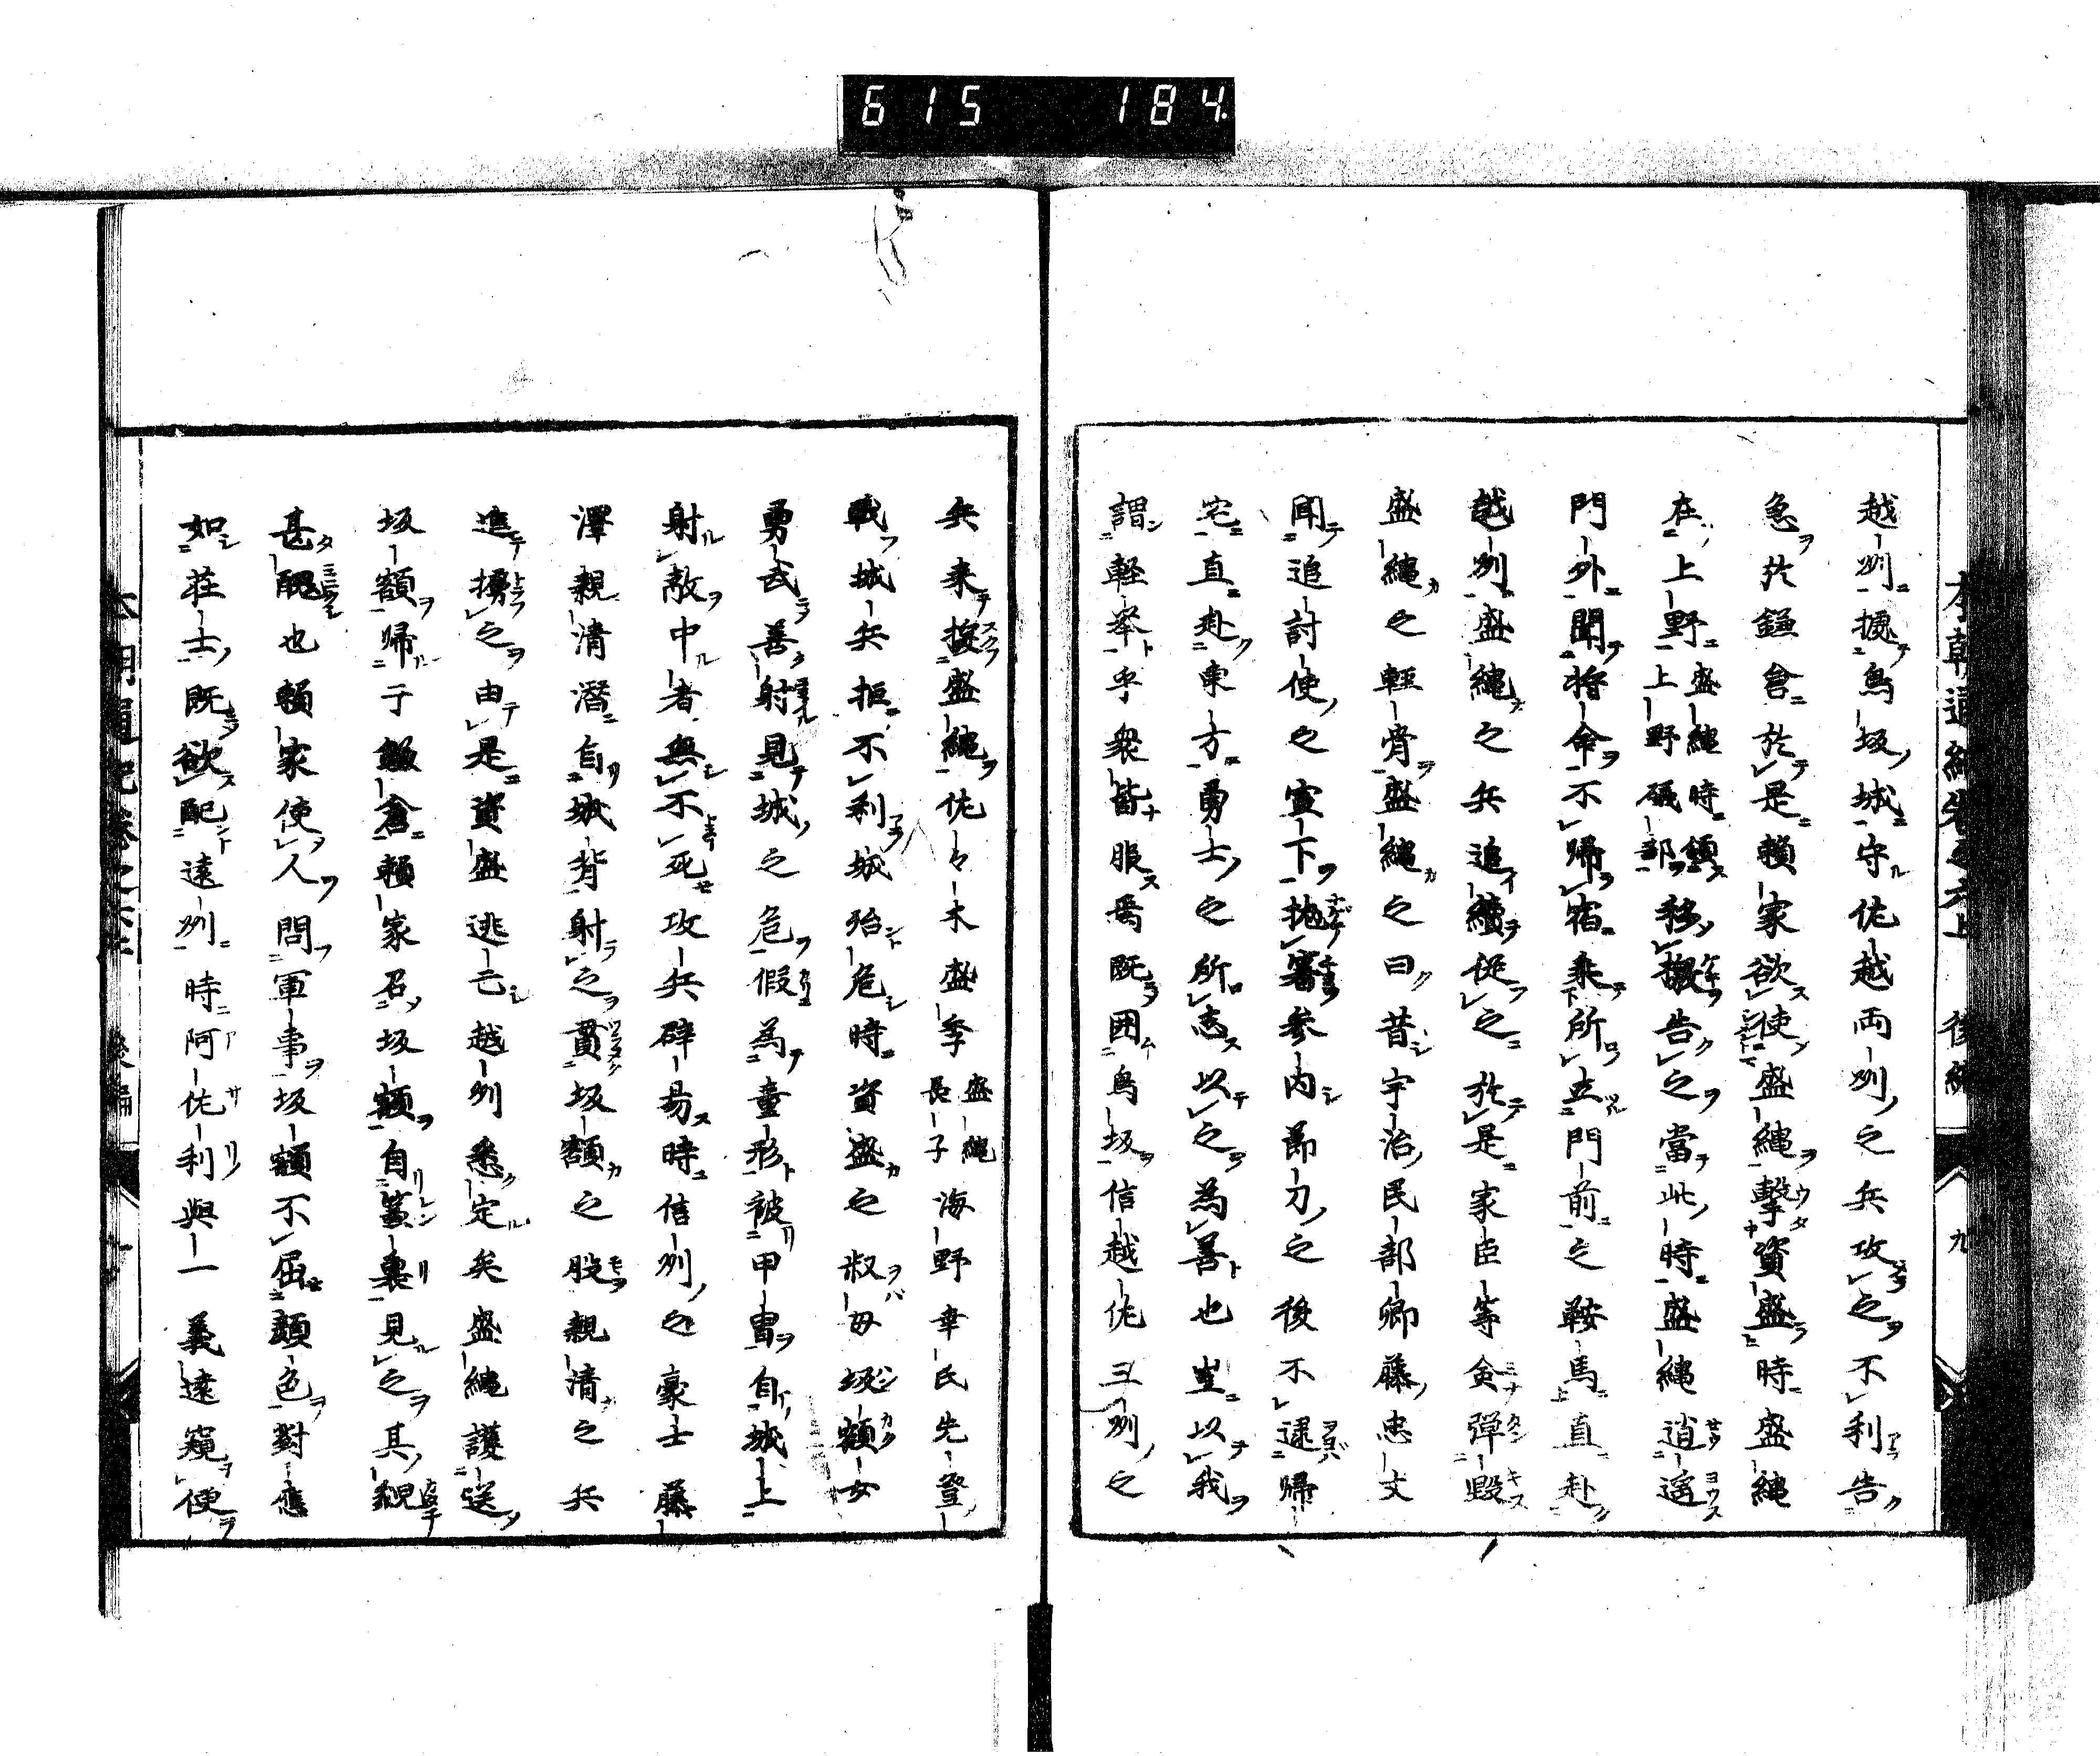 615 184
越州據鳥坂城守佐越両州之兵攻之不利告
急於鎌倉於是頼家欲使盛縄擊資盛時盛縄
在上野盛縄時領上野磯部移檄告之當此時盛縄逍遥
門外聞将命不帰宿乗所立門前之鞍馬直赴
越州盛縄之兵追續従之於是家臣等僉彈毀
盛縄之軽骨盛縄之曰昔宇治民部卿藤忠文
聞追討使之宣下抛箸参内節刀之後不遑帰
宅直赴東方勇士之所志以之為善也豈以我
謂軽挙乎衆皆服焉既囲鳥坂信越佐三州之
兵来援盛縄佐々木盛季盛縄長子海野幸氏先登
戦城兵拒不利城殆危時資盛之叔母坂額女
勇武善射見城之危假為童形被甲冑自城上
射敵中者無不死攻兵辟易時信州之豪士藤
澤親清潜自城背射之貫坂額之股親清之兵
進擒之由是資盛逃亡越州悉定矣盛縄護送
坂額帰于鎌倉頼家召坂額自簾裏見之其貌
甚醜也頼家使人問軍事坂額不屈顔色對應
如荘士既欲配遠州時阿佐利與一義遠窺便